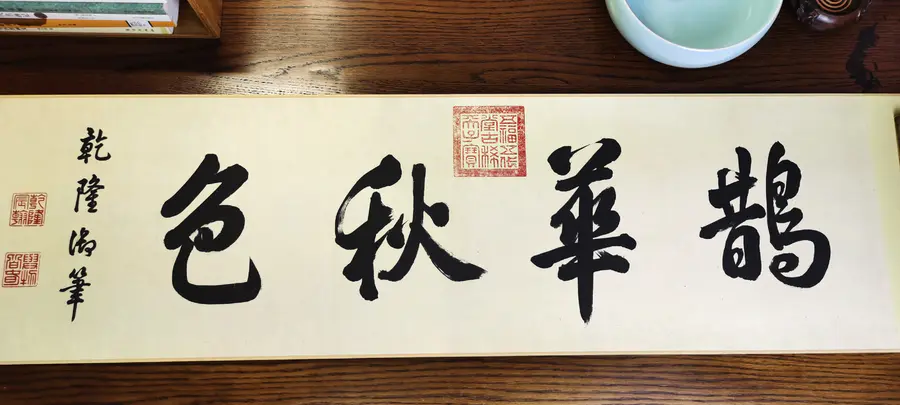 鵲華秋色
乾隆御筆
五福五代堂古稀天子寶
乾隆宸翰